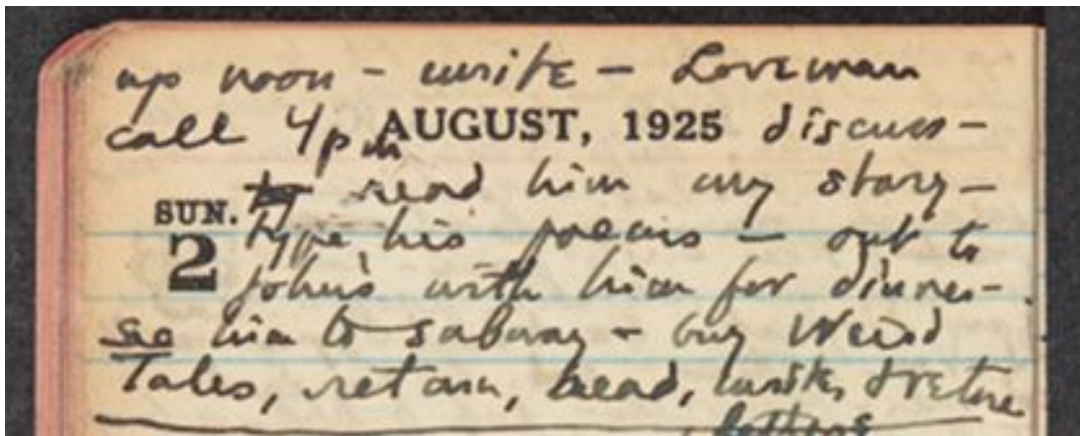 up noon - write - Loveman
call 4pm AUGUST, 1925 discuss -
read him my story -
SUN. type his poems - out to
2 John's with him for dinner -
see him to subway - buy Weird
Tales, return, read, write, & retire
letters